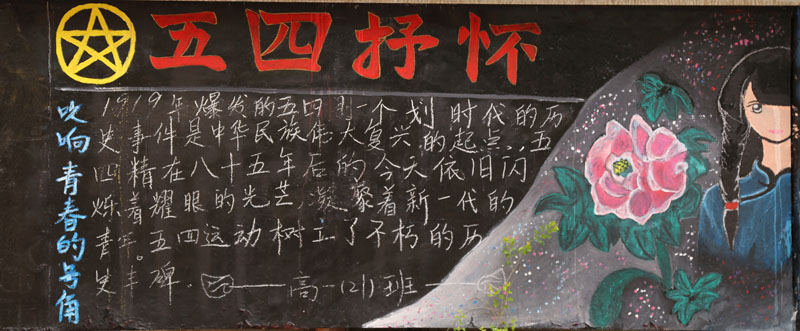 五四抒怀
吹响青春的号角
1919年爆发的五四是一个划时代的历
史事件是中华民族伟大复兴的起点，五
四精在八十五年后的今天依旧闪
烁着耀眼的光芒，凝聚着新一代的
青年。五四运动树立了不朽的历
史丰碑．
高一(21)班